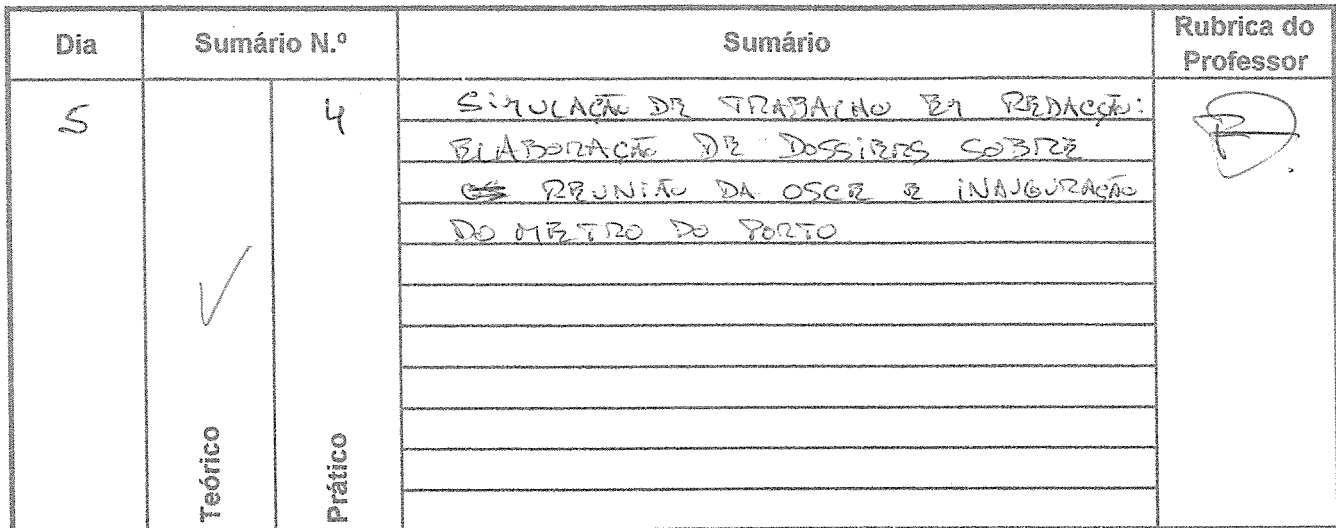 Dia
Sumário N.º
Sumário
Rubrica do
Professor
5
4
SIMULAÇÃO DE TRABALHO EM REDACÇÃO:
ELABORAÇÃO DE DOSSIERS SOBRE
REUNIÃO DA OSCE E INAUGURAÇÃO
DO METRO DO PORTO
Teórico
Prático